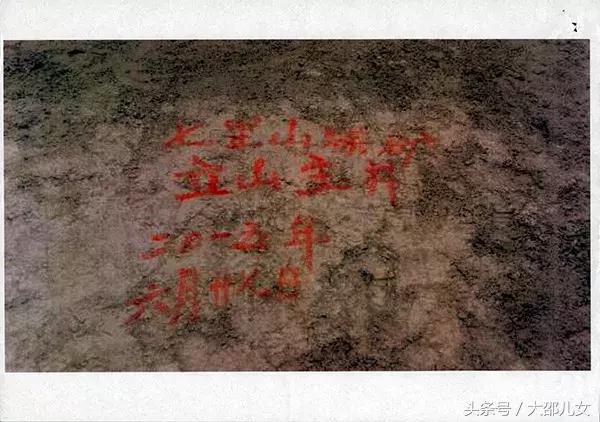 七里山煤矿
山主井
二〇一五年
六月廿八日
头条号 / 大邵儿女